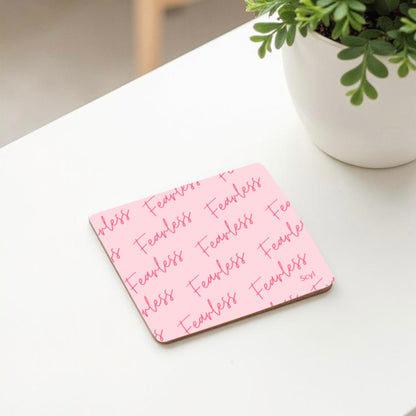 Fearless Fearless
Fearless Fearless Fearless
Fearless Fearless Fearless
Fearless Fearless Fearless
Fearless Fearless
Scyl